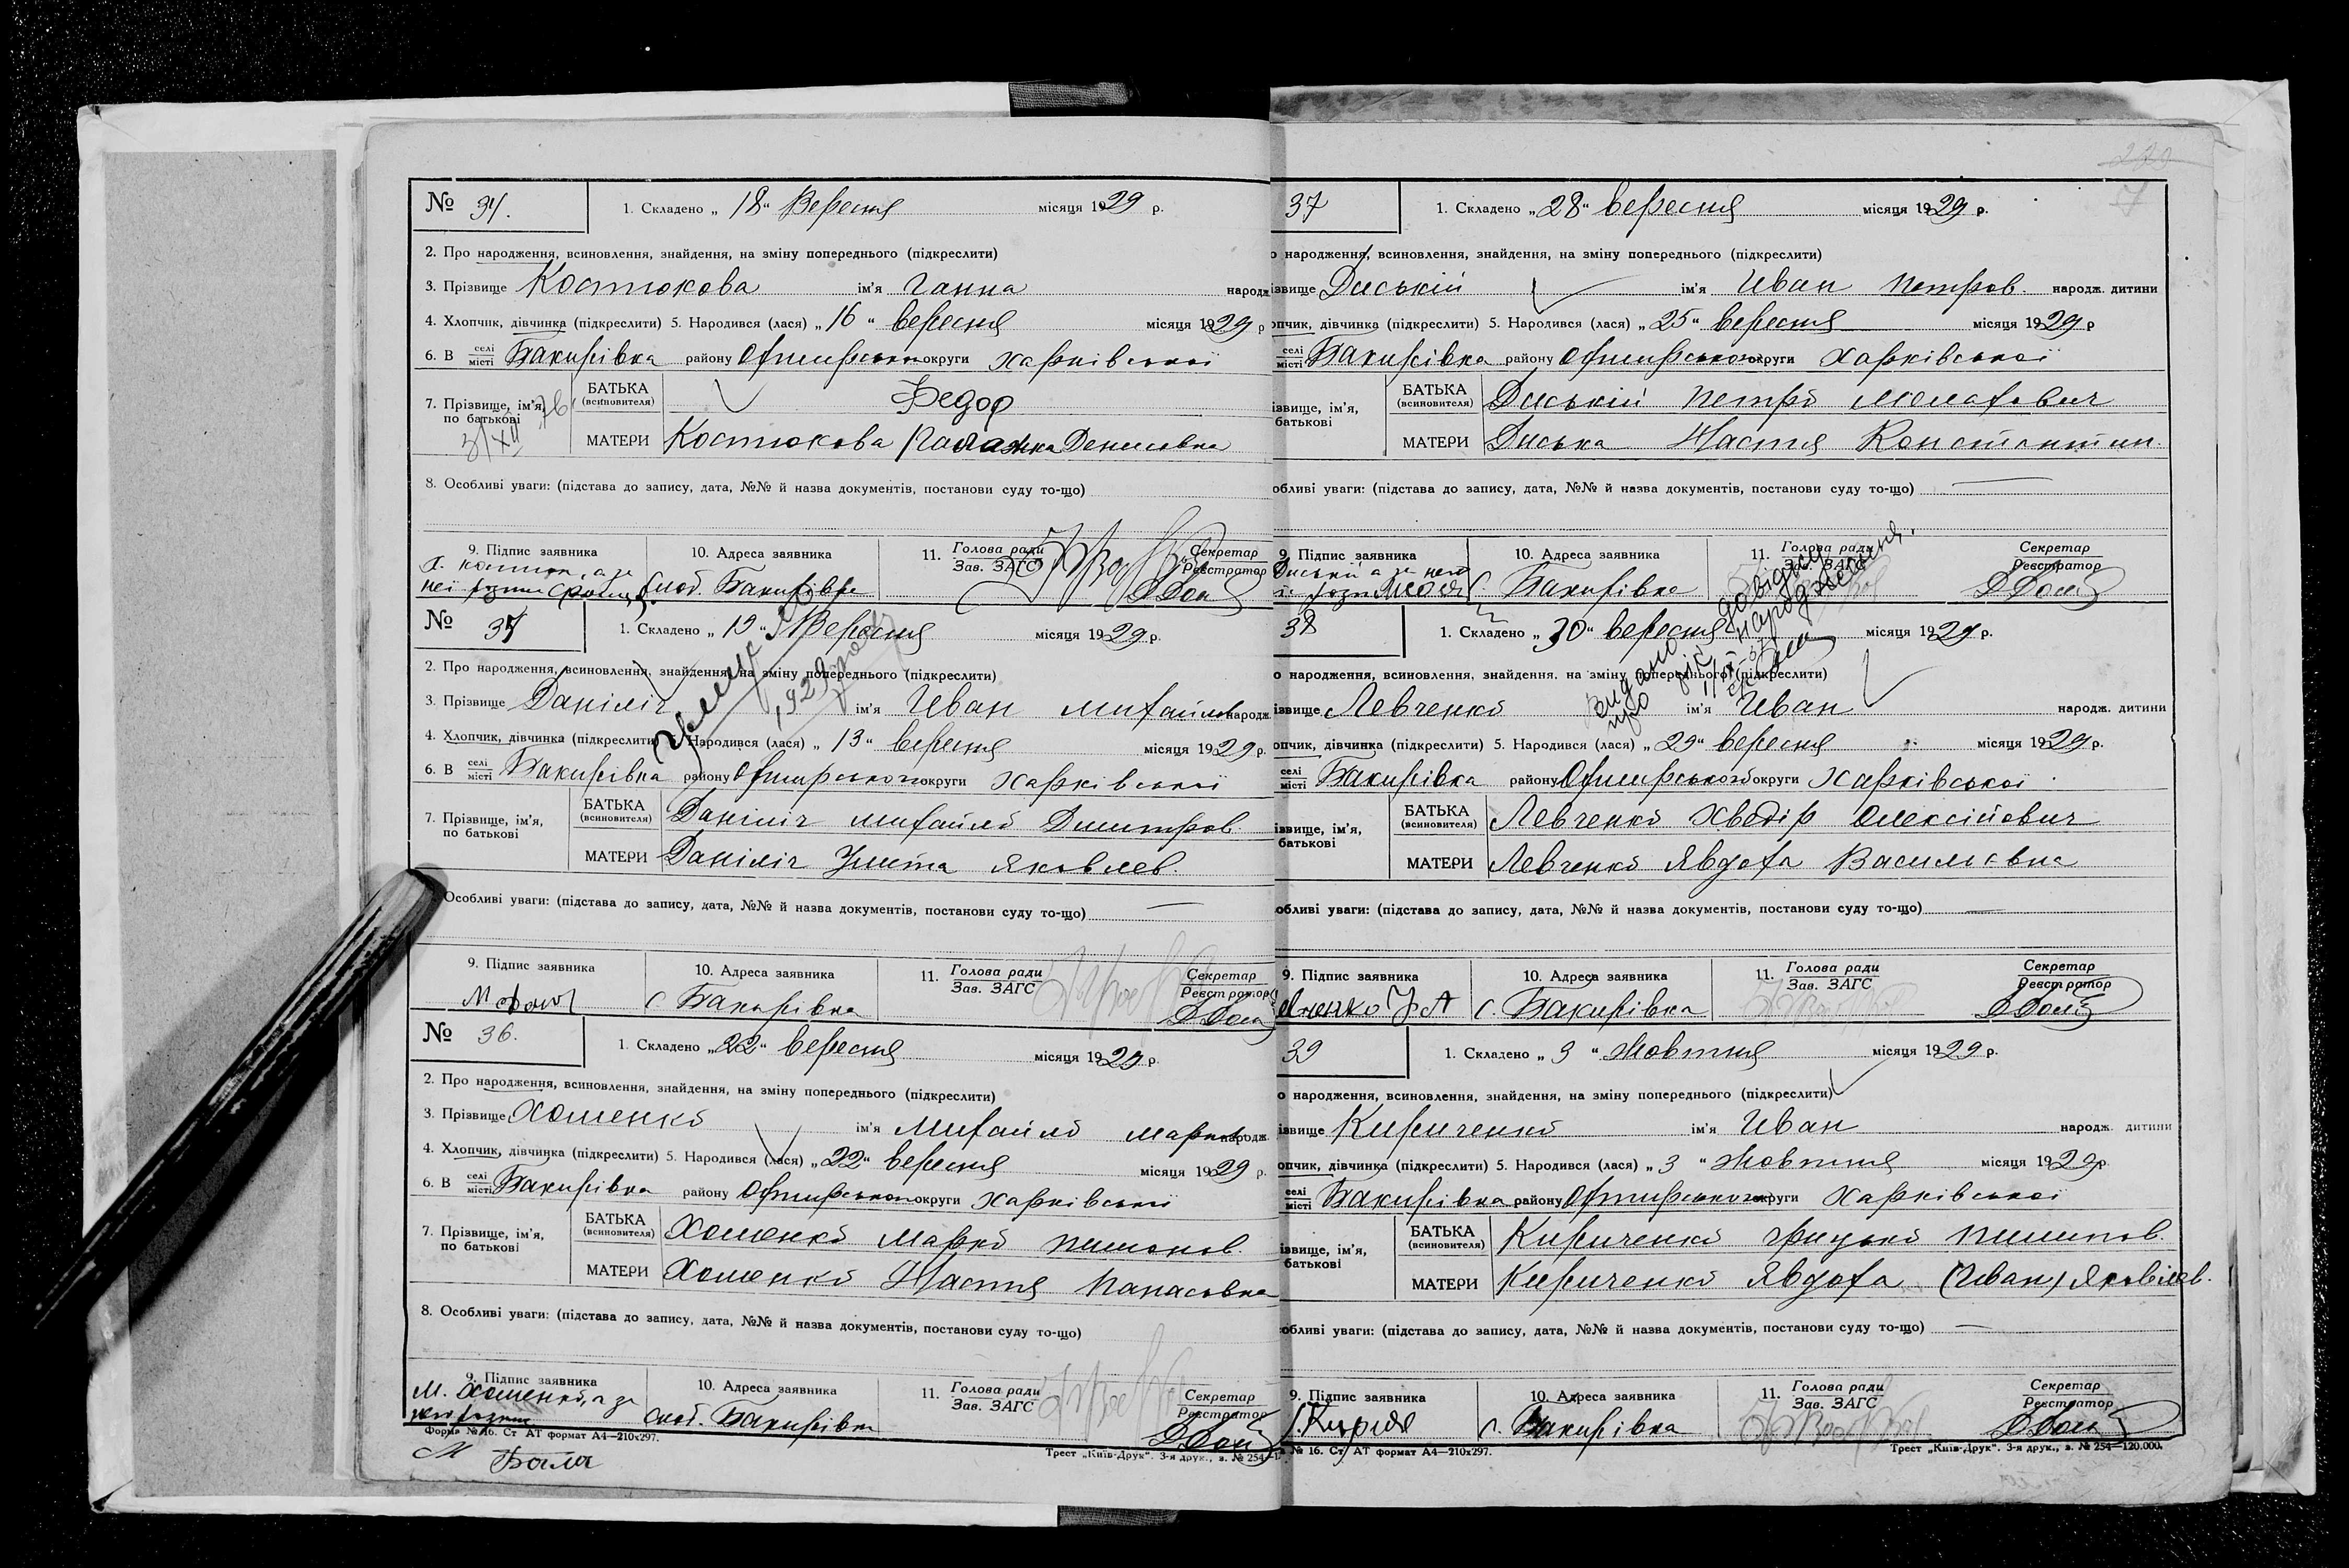 № 34.
1. Складено „ 18 “ Вересня місяця 1929 р.
2. Про народження, всиновлення, знайдення, на зміну попереднього (підкреслити)
3. Прізвище Костюкова ім'я Ганна народж
4. Хлопчик, дівчинка (підкреслити) 5. Народився (лася) „ 16 “ вересня місяця 1929 р
6. В селі місті Бакирівка району Охтирського округи Харківської
7. Прізвище, ім'я, по батькові
БАТЬКА (всиновителя) Федор
МАТЕРИ Костюкова Палажка Денисовна
8. Особливі уваги: (підстава до запису, дата, №№ й назва документів, постанови суду то-що)
9. Підпис заявника 10. Адреса заявника 11. Голова ради Зав. ЗАГС Секретар Реєстратор
слоб. Бакирівка
№ 35
1. Складено „ 19 “ Вересня місяця 1929 р.
2. Про народження, всиновлення, знайдення, на зміну попереднього (підкреслити)
3. Прізвище Даніліч ім'я Иван Михайлов народж
4. Хлопчик, дівчинка (підкреслити) 5. Народився (лася) „ 13 “ вересня місяця 1929 р.
6. В селі місті Бакирівка району Охтирського округи Харківської
7. Прізвище, ім'я, по батькові
БАТЬКА (всиновителя) Даніліч Михайло Дмитров.
МАТЕРИ Даніліч Улита Яковлев.
Особливі уваги: (підстава до запису, дата, №№ й назва документів, постанови суду то-що)
9. Підпис заявника 10. Адреса заявника 11. Голова ради Зав. ЗАГС Секретар Реєстратор
с Бакирівка
№ 36.
1. Складено „ 22 “ вересня місяця 1929 р.
2. Про народження, всиновлення, знайдення, на зміну попереднього (підкреслити)
3. Прізвище Хоменко ім'я Михайло Марков народж.
4. Хлопчик, дівчинка (підкреслити) 5. Народився (лася) „ 22 “ вересня місяця 1929 р.
6. В селі місті Бакирівка району Охтирського округи Харківської
7. Прізвище, ім'я, по батькові
БАТЬКА (всиновителя) Хоменко Марко Пимонов.
МАТЕРИ Хоменко Настя Панасовна
8. Особливі уваги: (підстава до запису, дата, №№ й назва документів, постанови суду то-що)
9. Підпис заявника 10. Адреса заявника 11. Голова ради Зав. ЗАГС Секретар Реєстратор
М. Хоменко, а за
слоб. Бакирівка
Форма № 16. Ст АТ формат А4—210х297.
Трест „Київ-Друк“. 3-я друк., з. № 254—1
37
1. Складено „ 28 “ вересня місяця 1929 р.
о народження, всиновлення, знайдення, на зміну попереднього (підкреслити)
ізвище Диський ім'я Иван Петров. народж. дитини
опчик, дівчинка (підкреслити) 5. Народився (лася) „ 25 “ вересня місяця 1929 р
селі місті Бакирівка району Охтирського округи Харківської
ізвище, ім'я, батькові
БАТЬКА (всиновителя) Диський Петро
МАТЕРИ Диська Настя Константин.
обливі уваги: (підстава до запису, дата, №№ й назва документів, постанови суду то-що)
9. Підпис заявника 10. Адреса заявника 11. Голова ради Зав. ЗАГС Секретар Реєстратор
Диський а за него
с. Бакирівка
Видано довідку
про народження
38
1. Складено „ 30 “ вересня місяця 1929 р.
о народження, всиновлення, знайдення, на зміну попереднього (підкреслити)
ізвище Левченко ім'я Иван народж. дитини
опчик, дівчинка (підкреслити) 5. Народився (лася) „ 29 “ вересня місяця 1929 р.
селі місті Бакирівка району Охтирського округи Харківської
ізвище, ім'я, батькові
БАТЬКА (всиновителя) Левченко Хведір Олексійович
МАТЕРИ Левченко Явдоха Василієвна
обливі уваги: (підстава до запису, дата, №№ й назва документів, постанови суду то-що)
9. Підпис заявника 10. Адреса заявника 11. Голова ради Зав. ЗАГС Секретар Реєстратор
с. Бакирівка
39
1. Складено „ 3 “ Жовтня місяця 1929 р.
о народження, всиновлення, знайдення, на зміну попереднього (підкреслити)
ізвище Кириченко ім'я Иван народж. дитини
опчик, дівчинка (підкреслити) 5. Народився (лася) „ 3 “ Жовтня місяця 1929 р
селі місті Бакирівка району Охтирського округи Харківської
ізвище, ім'я, батькові
БАТЬКА (всиновителя) Кириченко Грицько Пилипов.
МАТЕРИ Кириченко Явдоха (Иван) Яковлев.
обливі уваги: (підстава до запису, дата, №№ й назва документів, постанови суду то-що)
9. Підпис заявника 10. Адреса заявника 11. Голова ради Зав. ЗАГС Секретар Реєстратор
с. Бакирівка
№ 16. Ст АТ формат А4—210х297.
Трест „Київ-Друк“. 3-я друк., з. № 254—120.000.